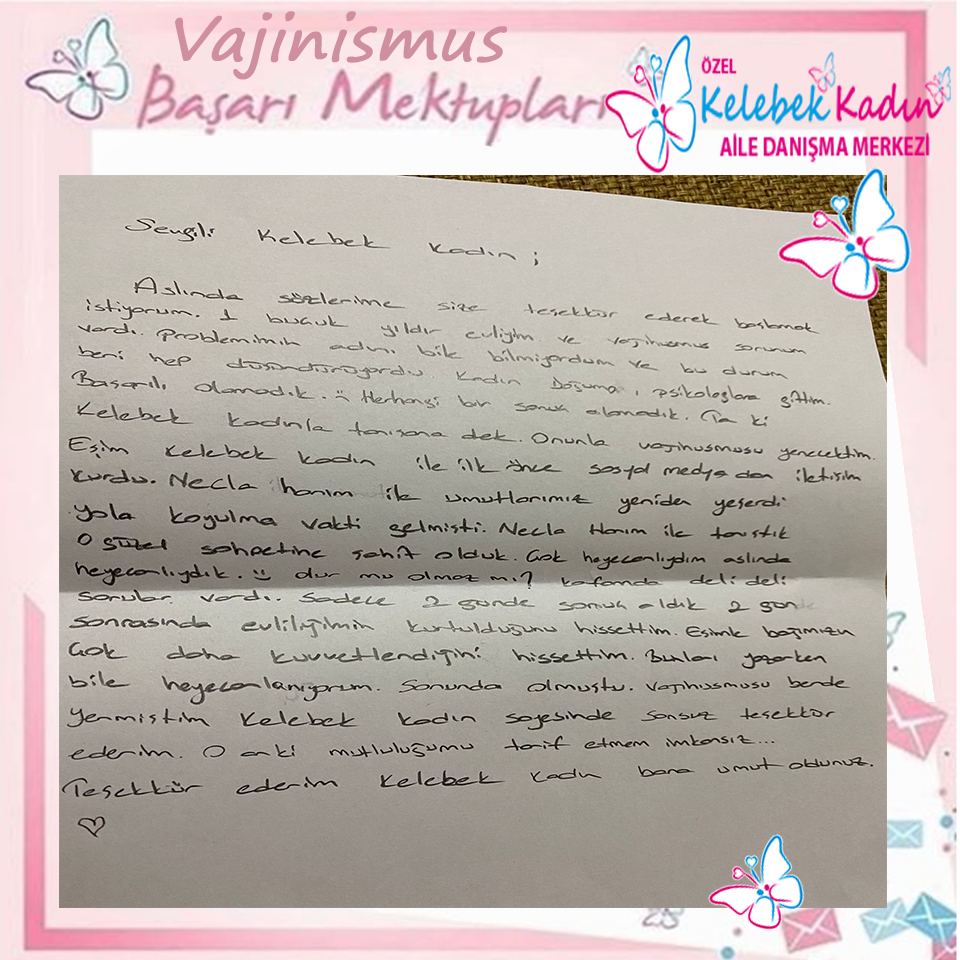 Vajinismus
Başarı Mektupları
ÖZEL
Kelebek Kadın
AİLE DANIŞMA MERKEZİ
Sevgili Kelebek Kadın ;
Aslında sözlerime size teşekkür ederek başlamak
istiyorum. 1 buçuk yıldır evliyim ve vajinusmus sorunum
vardı. Problemimin adını bile bilmiyordum ve bu durum
beni hep düşündürüyordu Kadın Doğuma, psikologlara gittim.
Başarılı olamadık. :( Herhangi bir sonuç alamadık. Ta ki
Kelebek Kadınla tanışana dek. Onunla vajinusmusu yenecektim.
Eşim Kelebek Kadın ile ilk önce sosyal medyadan iletişim
kurdu. Necla hanım ile umutlarımız yeniden yeşerdi
yola koyulma vakti gelmişti. Necla Hanım ile tanıştık
O güzel sohpetine şahit olduk. Çok heyecanlıydım aslında
heyecanlıydık. :) olur mu olmaz mı? kafamda deli deli
sorular vardı. Sadece 2 günde sonuç aldık 2 gün
sonrasında evliliğimin kurtulduğunu hissettim. Eşimle bağımızın
Çok daha kuvvetlendiğini hissettim. Bunları yazarken
bile heyecanlanıyorum. Sonunda olmuştu. Vajinusmusu bende
yenmiştim Kelebek Kadın sayesinde sonsuz teşekkür
ederim. O an ki mutluluğumu tarif etmem imkansız...
Teşekkür ederim Kelebek Kadın bana umut oldunuz.
♡